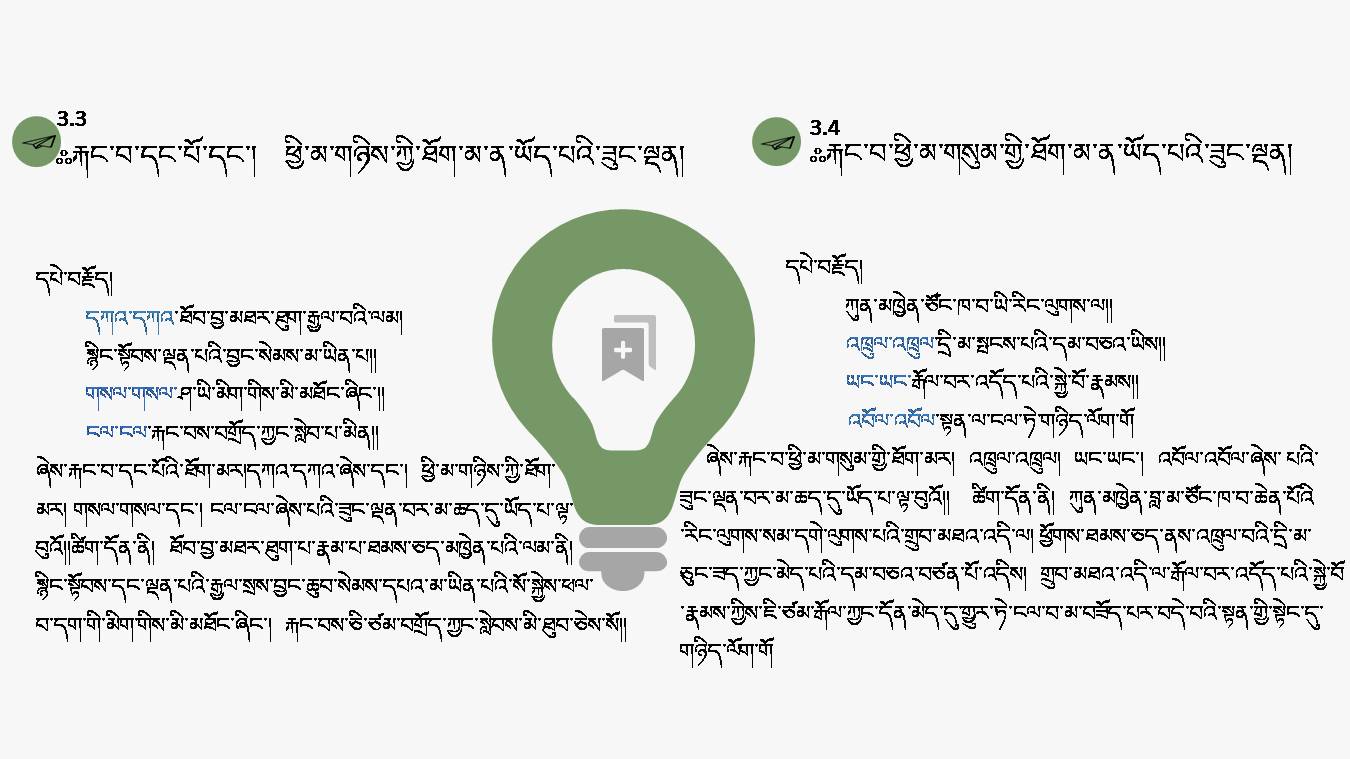 3.3
༷རྐང་བ་དང་པོ་དང་། ཕྱི་མ་གཉིས་ཀྱི་ཐོག་མ་ན་ཡོད་པའི་ཟུང་ལྡན།
དཔེ་བརྗོད།
དཀའ་དཀའ་ཐོབ་བྱ་མཐར་ཐུག་རྒྱལ་བའི་ལམ།
སྙིང་སྟོབས་ལྡན་པའི་བྱང་སེམས་མ་ཡིན་པ།།
གསལ་གསལ་ཤ་ཡི་མིག་གིས་མི་མཐོང་ཞིང་།།
ངལ་ངལ་རྐང་བས་བགྲོད་ཀྱང་སླེབ་པ་མིན།།
ཞེས་རྐང་བ་དང་པོའི་ཐོག་མར།དཀའ་དཀའ་ཞེས་དང་། ཕྱི་མ་གཉིས་ཀྱི་ཐོག་
མར། གསལ་གསལ་དང་། ངལ་ངལ་ཞེས་པའི་ཟུང་ལྡན་བར་མ་ཆད་དུ་ཡོད་པ་ལྟ་
བུའོ།།ཚིག་དོན་ནི། ཐོབ་བྱ་མཐར་ཐུག་པ་རྣམ་པ་ཐམས་ཅད་མཁྱེན་པའི་ལམ་ནི།
སྙིང་སྟོབས་དང་ལྡན་པའི་རྒྱལ་སྲས་བྱང་ཆུབ་སེམས་དཔའ་མ་ཡིན་པའི་སོ་སྐྱེས་ཕལ་
བ་དག་གི་མིག་གིས་མི་མཐོང་ཞིང་། རྐང་བས་ཅི་ཙམ་བགྲོད་ཀྱང་སླེབས་མི་ཐུབ་ཅེས་སོ།།
3.4
རྐང་བ་ཕྱི་མ་གསུམ་གྱི་ཐོག་མ་ན་ཡོད་པའི་ཟུང་ལྡན།
དཔེ་བརྗོད།
ཀུན་མཁྱེན་ཙོང་ཁ་བ་ཡི་རིང་ལུགས་ལ།།
འཁྲུལ་འཁྲུལ་དྲི་མ་སྤངས་པའི་དམ་བཅའ་ཡིས།།
ཡང་ཡང་རྒོལ་བར་འདོད་པའི་སྐྱེ་བོ་རྣམས།།
འབོལ་འབོལ་སྟན་ལ་ངལ་ཏེ་གཉིད་ལོག་གོ
ཞེས་རྐང་བ་ཕྱི་མ་གསུམ་གྱི་ཐོག་མར། འཁྲུལ་འཁྲུལ། ཡང་ཡང་། འབོལ་འབོལ་ཞེས་ པའི་
ཟུང་ལྡན་བར་མ་ཆད་དུ་ཡོད་པ་ལྟ་བུའོ།། ཚིག་དོན་ནི། ཀུན་མཁྱེན་བླ་མ་ཙོང་ཁ་བ་ཆེན་པོའི
་རིང་ལུགས་སམ་དགེ་ལུགས་པའི་གྲུབ་མཐའ་འདི་ལ། ཕྱོགས་ཐམས་ཅད་ནས་འཁྲུལ་བའི་དྲི་མ་
ཅུང་ཟད་ཀྱང་མེད་པའི་དམ་བཅའ་བཙན་པོ་འདིས། གྲུབ་མཐའ་འདི་ལ་རྒོལ་བར་འདོད་པའི་སྐྱེ་བོ
་རྣམས་ཀྱིས་ཇི་ཙམ་རྒོལ་ཀྱང་དོན་མེད་དུ་གྱུར་ཏེ་ངལ་བ་མ་བཟོད་པར་བདེ་བའི་སྟན་གྱི་སྟེང་དུ་
གཉིད་ལོག་གོ